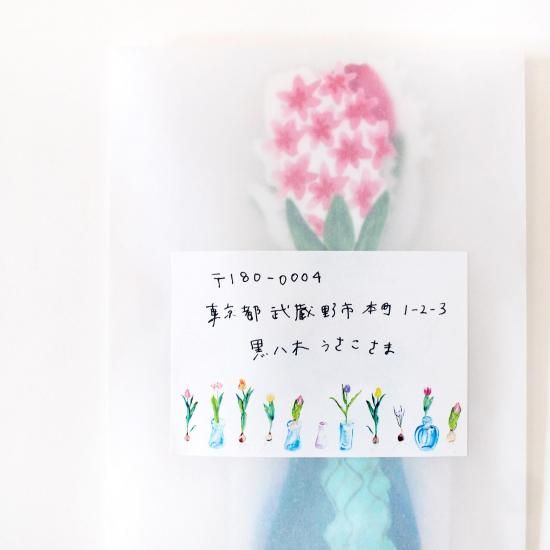 〒180-0004
東京都武蔵野市本町1-2-3
黒八木うさこさま